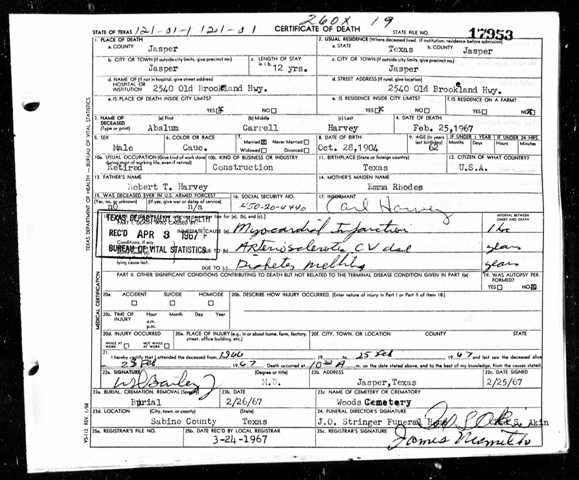 260X 19
STATE OF TEXAS 121-01-1 121-01 CERTIFICATE OF DEATH STATE FILE NO. 17953
1. PLACE OF DEATH 2. USUAL RESIDENCE (Where deceased lived. If institution: residence before admission)
a. COUNTY Jasper a. STATE Texas b. COUNTY Jasper
b. CITY OR TOWN (If outside city limits, give precinct no.) c. LENGTH OF STAY in 1 b. c. CITY OR TOWN (If outside city limits, give precinct no.)
Jasper 12 yrs. Jasper
d. NAME OF (If not in hospital, give street address) HOSPITAL OR INSTITUTION d. STREET ADDRESS (If rural, give location)
2540 Old Brookland Hwy. 2540 Old Brookeland Hwy.
e. IS PLACE OF DEATH INSIDE CITY LIMITS? e. IS RESIDENCE INSIDE CITY LIMITS? f. IS RESIDENCE ON A FARM?
YES NO YES NO YES NO
3. NAME OF DECEASED (Type or print) (a) First (b) Middle (c) Last 4. DATE OF DEATH
Abalum Carrell Harvey Feb. 25, 1967
5. SEX 6. COLOR OR RACE 7. Married Never Married Widowed Divorced 8. DATE OF BIRTH 9. AGE (In years last birthday) IF UNDER 1 YEAR Months Days IF UNDER 24 HRS. Hours Min.
Male Cauc. Oct. 28, 1904 62
10a. USUAL OCCUPATION (Give kind of work done during most of working life, even if retired) 10b. KIND OF BUSINESS OR INDUSTRY 11. BIRTHPLACE (State or foreign country) 12. CITIZEN OF WHAT COUNTRY?
Retired Construction Texas U.S.A.
13. FATHER'S NAME 14. MOTHER'S MAIDEN NAME
Robert T. Harvey Emma Rhodes
15. WAS DECEASED EVER IN U.S. ARMED FORCES? 16. SOCIAL SECURITY NO. 17. INFORMANT
(Yes, no, or unknown) (If yes, give war or dates of service)
no n/a 450-20-4440 Carl Harvey
TEXAS DEPARTMENT OF HEALTH
REC'D APR 3 1967
BUREAU OF VITAL STATISTICS
INTERVAL BETWEEN ONSET AND DEATH
Myocardial Infarction 1 hr
Arteriosclerotic CV dse years
lying cause last. DUE TO Diabetes mellitus years
PART II. OTHER SIGNIFICANT CONDITIONS CONTRIBUTING TO DEATH BUT NOT RELATED TO THE TERMINAL DISEASE CONDITION GIVEN IN PART I(a) 19. WAS AUTOPSY PERFORMED?
YES NO
20a. ACCIDENT SUICIDE HOMICIDE 20b. DESCRIBE HOW INJURY OCCURRED. (Enter nature of injury in Part I or Part II of Item 18.)
20c. TIME OF INJURY Hour a.m. p.m. Month Day Year
20d. INJURY OCCURRED WHILE AT WORK NOT WHILE AT WORK 20e. PLACE OF INJURY (e.g., in or about home, farm, factory, street, office building, etc.) 20f. CITY, TOWN, OR LOCATION COUNTY STATE
21. I hereby certify that I attended the deceased from 1966 19 to 25 Feb 19 67 and last saw the deceased alive
on 25 Feb 19 67 Death occurred at 10:00 A m. on the date stated above, and to the best of my knowledge, from the causes stated.
22a. SIGNATURE (Degree or title) 22b. ADDRESS 22c. DATE SIGNED
M.D. Jasper, Texas 2/25/67
23a. BURIAL, CREMATION, REMOVAL (Specify) 23b. DATE 23c. NAME OF CEMETERY OR CREMATORY
Burial 2/26/67 Woods Cemetery
23d. LOCATION (City, town, or county) (State) 24. FUNERAL DIRECTOR'S SIGNATURE
Sabine County Texas J.O. Stringer Funeral S. Akin
25a. REGISTRAR'S FILE NO. 25b. DATE REC'D BY LOCAL REGISTRAR 25c. REGISTRAR'S SIGNATURE
3-24-1967 James
TEXAS DEPARTMENT OF HEALTH - BUREAU OF VITAL STATISTICS
MEDICAL CERTIFICATION